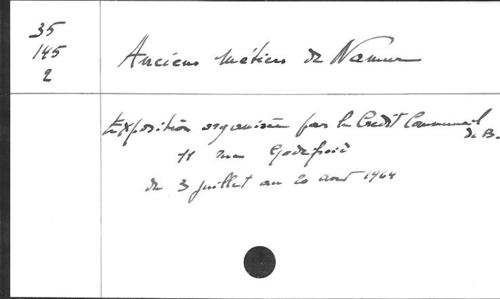 35
145
2
Anciens Métiers de Namur
Exposition organisée par le Crédit Communal
de B.
11 rue Godefroid
du 3 juillet au 20 août 1964